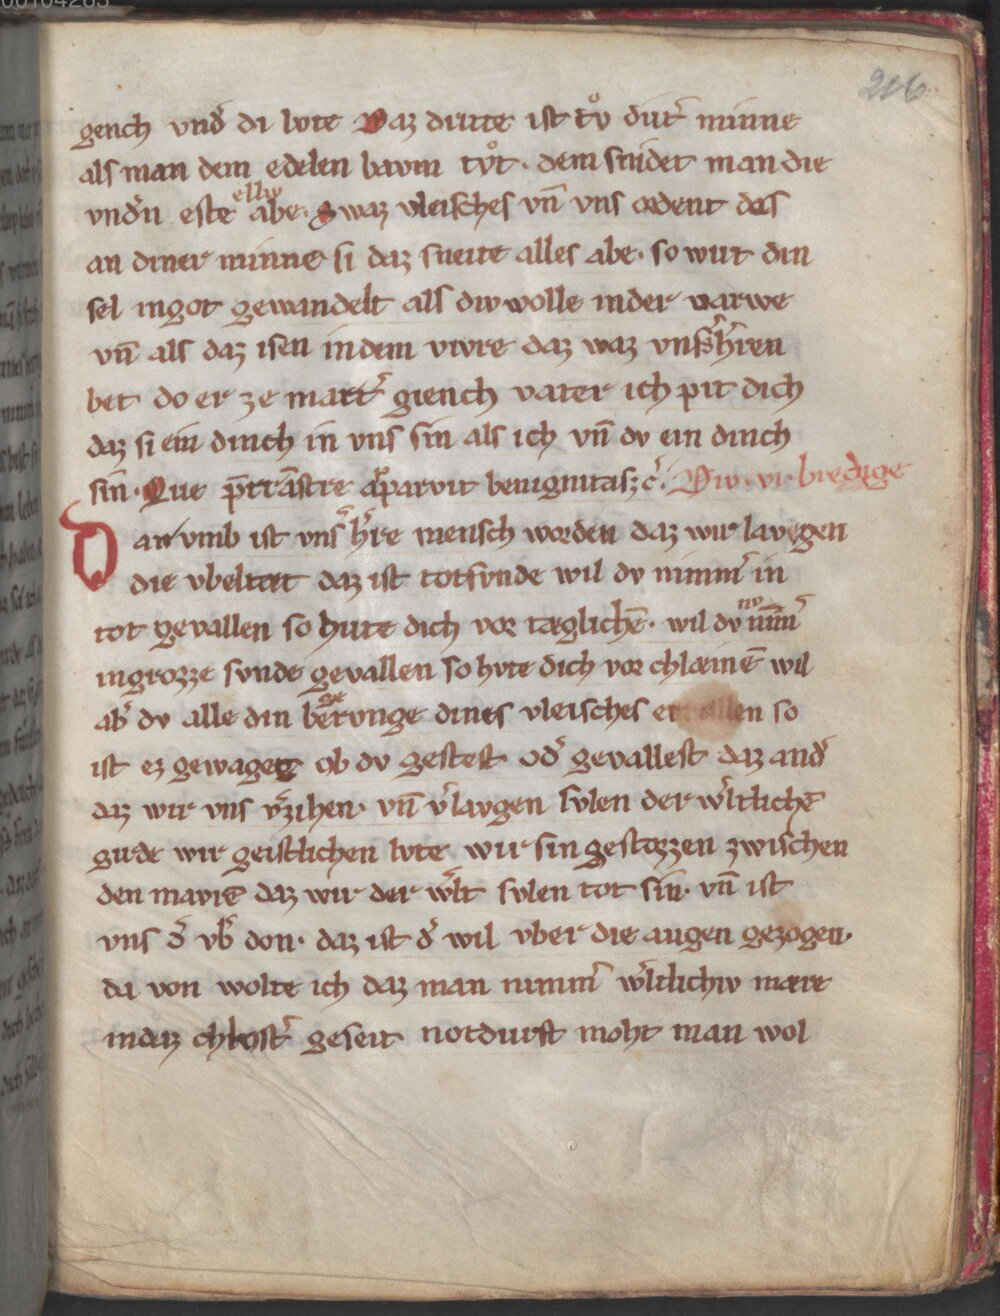 216
gench vnd̉ di lvte Daz dritte ist tv̊ dur̉ minne
als man dem edelen bavm tv̊t · dem snidet man die
vnd̉n este ellw abe · Swaz vleisches vn̄ vns ordent das
an diner minne si daz sneite alles abe · so wirt din
sel ingot gewandelt als div wolle inder varwe
vn̄ als daz isen indem vivre daz waz vns̉ h̉ren
bet do er ze matt̉ giench vater ich pit dich
daz si ein dinch in vns sin als ich vn̄ dv ein dinch
sin · Que apparvit benignitas ⁊c̉ · Div · vi · bredige
Darvmb ist vns̉ h̉re mensch worden daz wir lavgen
die vbeltat daz ist totsvnde wil dv nimm̉ in
tot gevallen so hute dich vor tæglichē · wil dv nv nim̄m̉
ingrozze svnde gevallen so hvte dich vor chlæinē wil
ab̉ dv alle din ervnge dines vleisches so
ist ez gewaget ob dv gestest od̉ gevallest daz and̉
daz wir vns v̉zihen · vn̄ v̉lavgen svlen der w̉ltlichē
gvde wir geistlichen lvte wir sin gestozzen zwischen
den mavrē daz wir der w̉lt svlen tot sin · vn̄ ist
vns d̉ vb̉ don · daz ist d̉ wil vber die augen gezogen ·
da von wolte ich daz man nimm̉ w̉ltlichiv mære
indaz chlost̉ geseit notdurft moht man wol